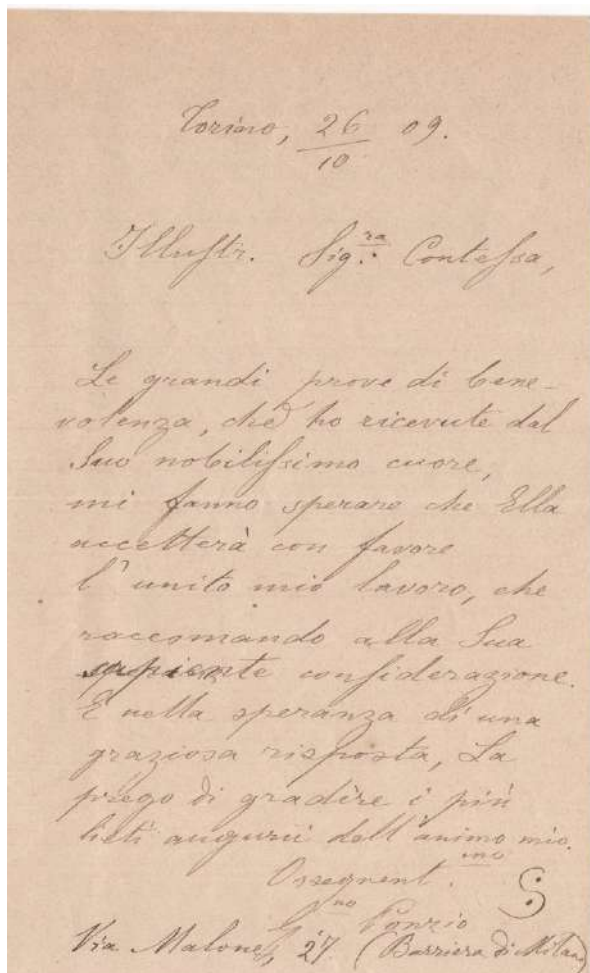 Torino, 26/10 09.
Illustr. Sig.ra Contessa,
Le grandi prove di bene-
volenza, che ho ricevute dal
Suo nobilissimo cuore,
mi fanno sperare che Ella
accetterà con favore
l'unito mio lavoro, che
raccomando alla Sua
sapiente considerazione.
E nella speranza di una
graziosa risposta, La
prego di gradire i più
lieti augurii dell'animo mio.
Ossequent.mo
G.no Ponzio
Via Malone, 27 (Barriera di Milano)